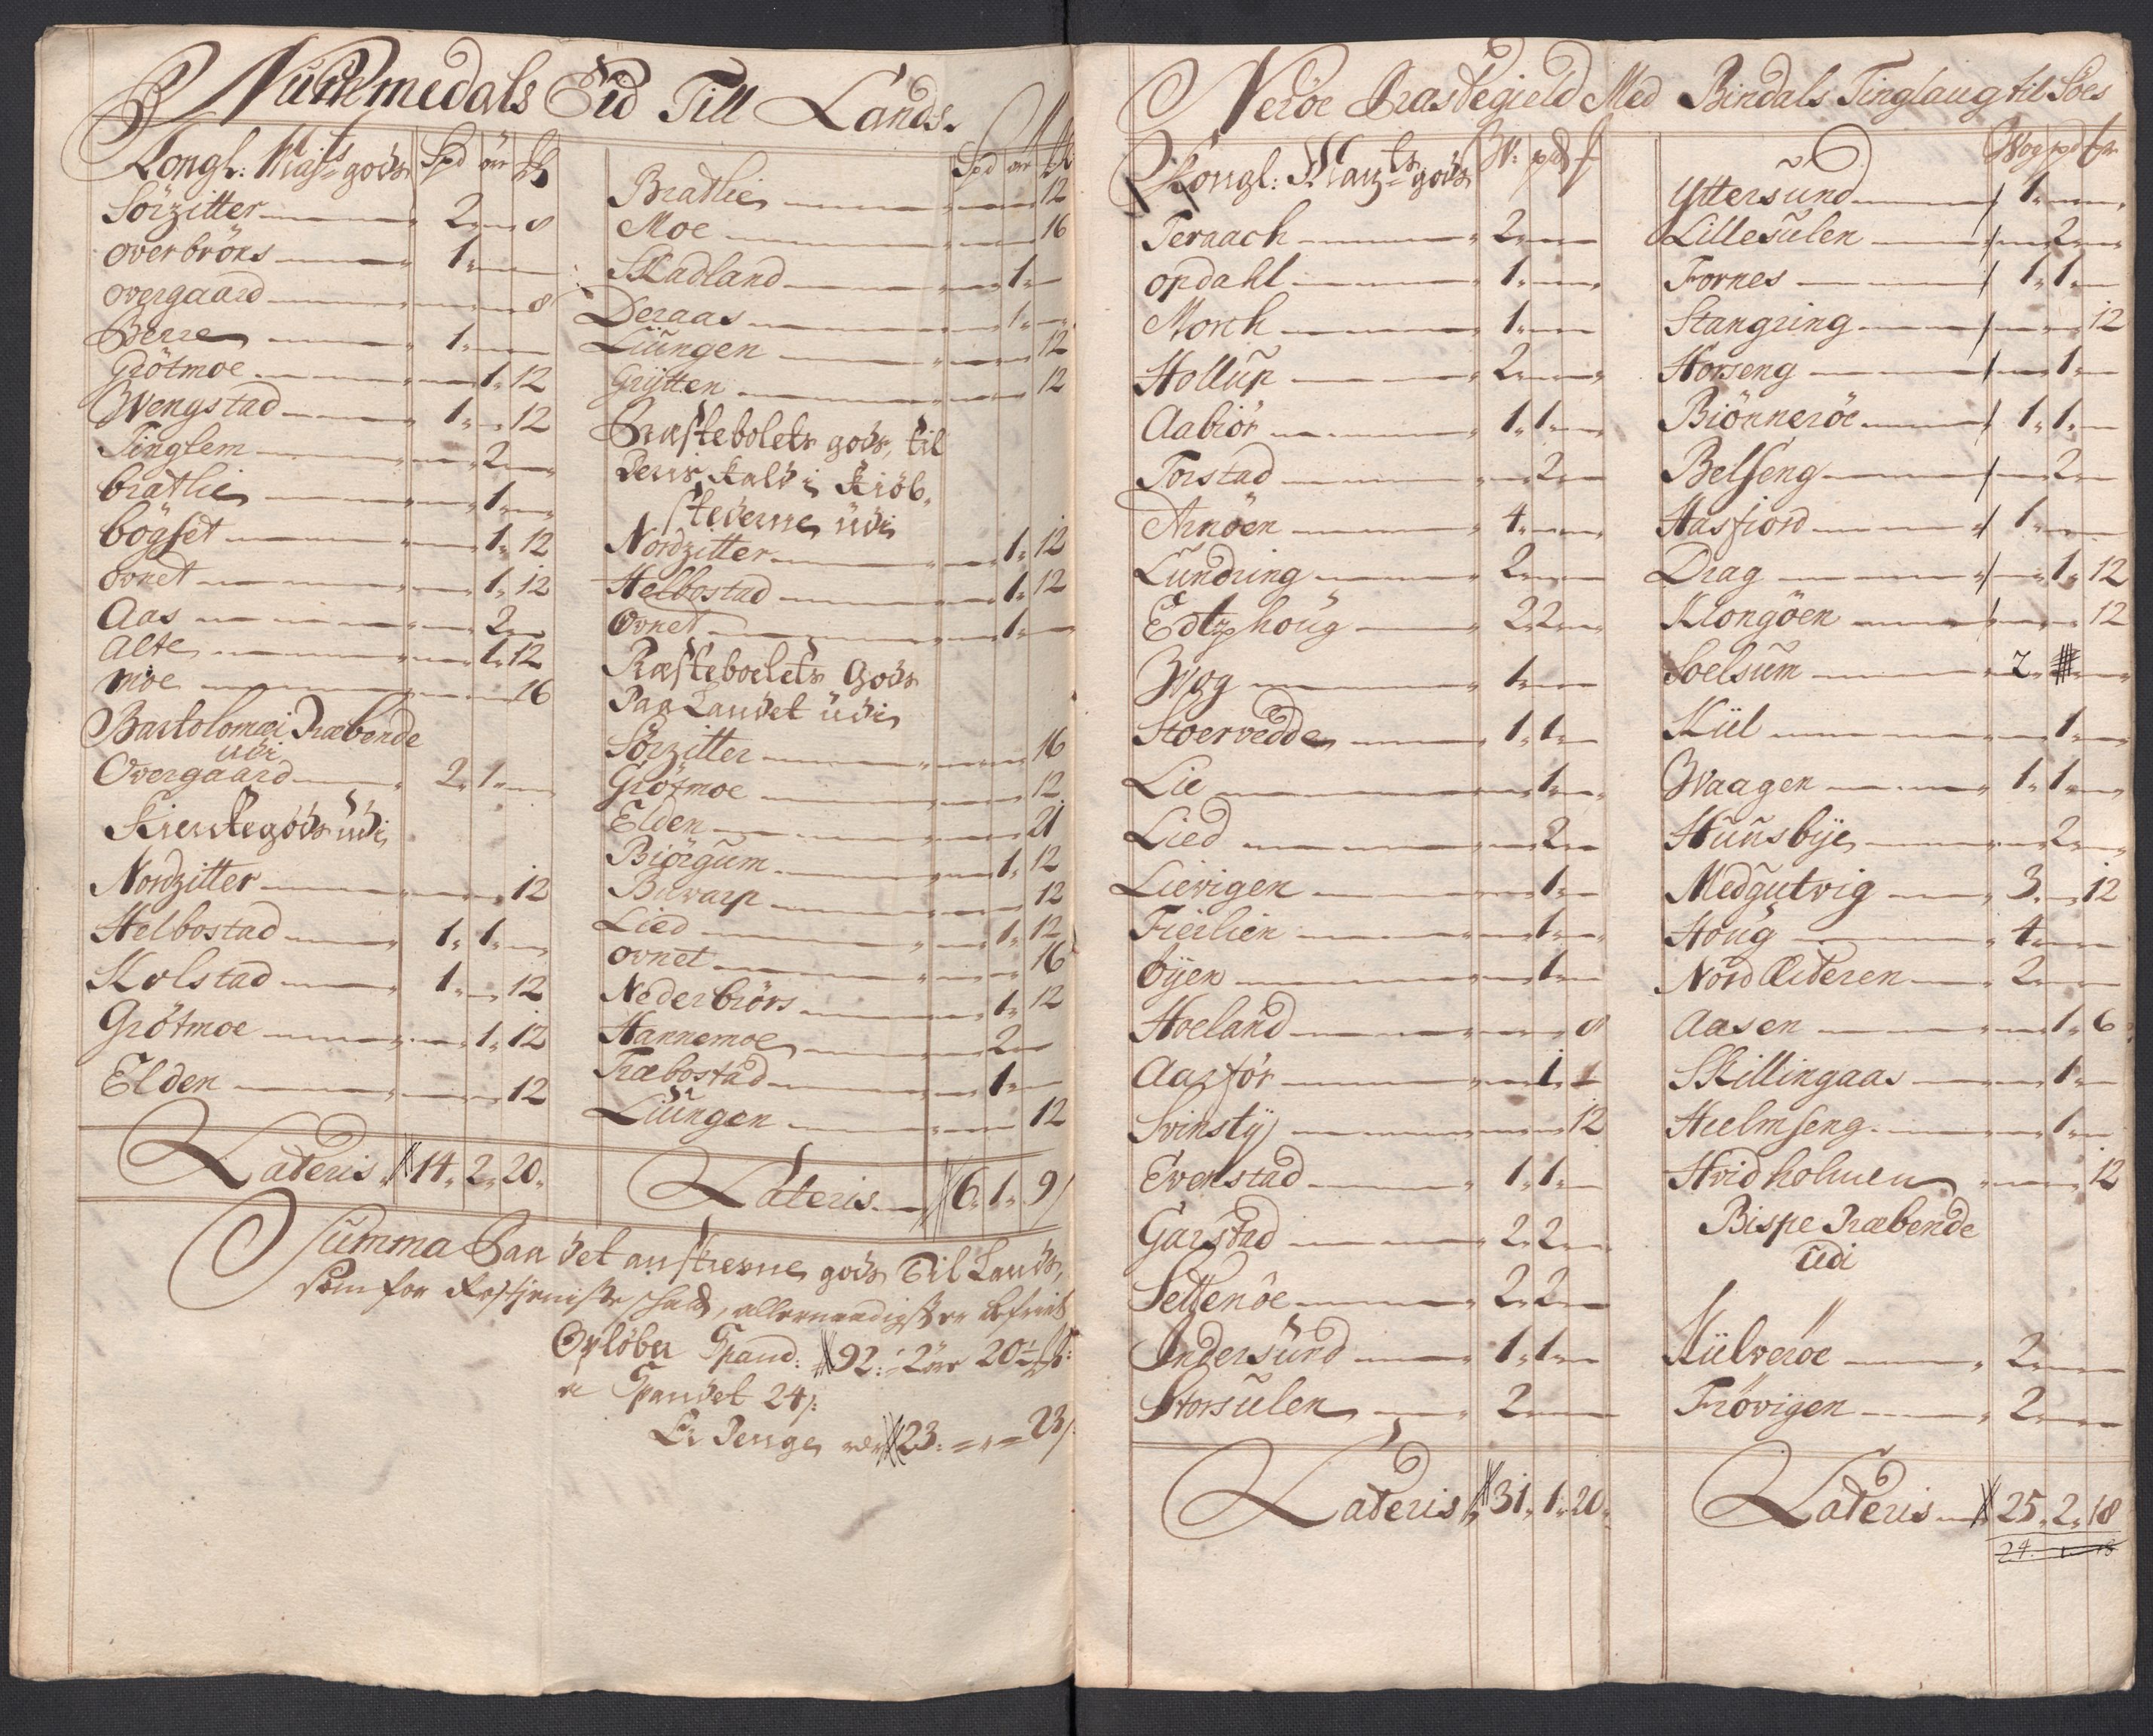 Nummedals Eid Till Lands.
Kongl: Maj:ts gods Spd ør
Sörzitter 2 8
overbröns 1
overgaard 8
Berre 1
Grötmoe 1 12
Wengstad 1 12
Tinglem 2
bratlie 1
bögset 1 12
ovnet 1 12
Aas 2
alte 1 12
moe 16
Bartolomæi Præbende
udi
Overgaard 2 1
Kierkegods udi
Nordzitter 12
Helbostad 1 1
Kolstad 1 12
Grötmoe 1 12
Elden 12
Lateris 14 2 20
Spd ør
Bratlie 12
Moe 16
Skadland 1
Deraas 1
Liungen 12
Grytten 12
Præstebolets gods, til
deris kald i Kiöb-
stederne udi
Nordzitter 1 12
Helbostad 1 12
Ovnet 1
Præsteboelets Gods
Paa Landet udi
Sörzitter 16
Grötmoe 12
Elden 21
Biörgum 1 12
Buvarp 12
Lied 1 12
ovnet 16
Nederbrörs 1 12
Hannemoe 2
Træbostad 1
Liungen 12
Lateris 6 1 9
Summa Paa det anskrevne gods Til Lands,
som for Rostjeniste schatt, allernaadigst er befriet
Opløber Spand: 92: 2 ør 20½
a Spandet 24
Er Penge 23 23
Neröe Præstegield Med Bindals Tinglaug til Söes
Kongl: Mayts gods W: pd
Teraach 2
opdahl 1
Morch 1
Hollup 2
Aabiör 1 1
Torstad 2
Arnöen 4
Lundring 2
Edtzhoug 2 2
Wog 1
Stoervedde 1 1
Lie 1
Lied 2
Lievigen 1
Fierlien 1
öyen 1
Hoeland 8
Aarför 1 1
Svinsty 12
Evenstad 1 1
Garstad 2 2
Settenöe 2 2
Indersund 1 1
Storsulen 2
Lateris 31 1 20
Wog pd
Yttersund 1
Lillesulen 2
Fornes 1 1
Stangring 12
Horseng 1
Biönneröe 1 1
Belseng 2
Hasfiord 1
Drag 1 12
Klongöen 12
Soelsum 2
Kiil 1
Waagen 1 1
Huunsbye 2
Medgutvig 3 12
Houg 4
Nord Œderen 2
Aasen 1 6
Skillingaas 1
Hielmseng 1
Hvidholmen 12
Bispe Præbende
udi
Kiilveröe 2
Frövigen 2
Lateris 25 2 18
24 1 18